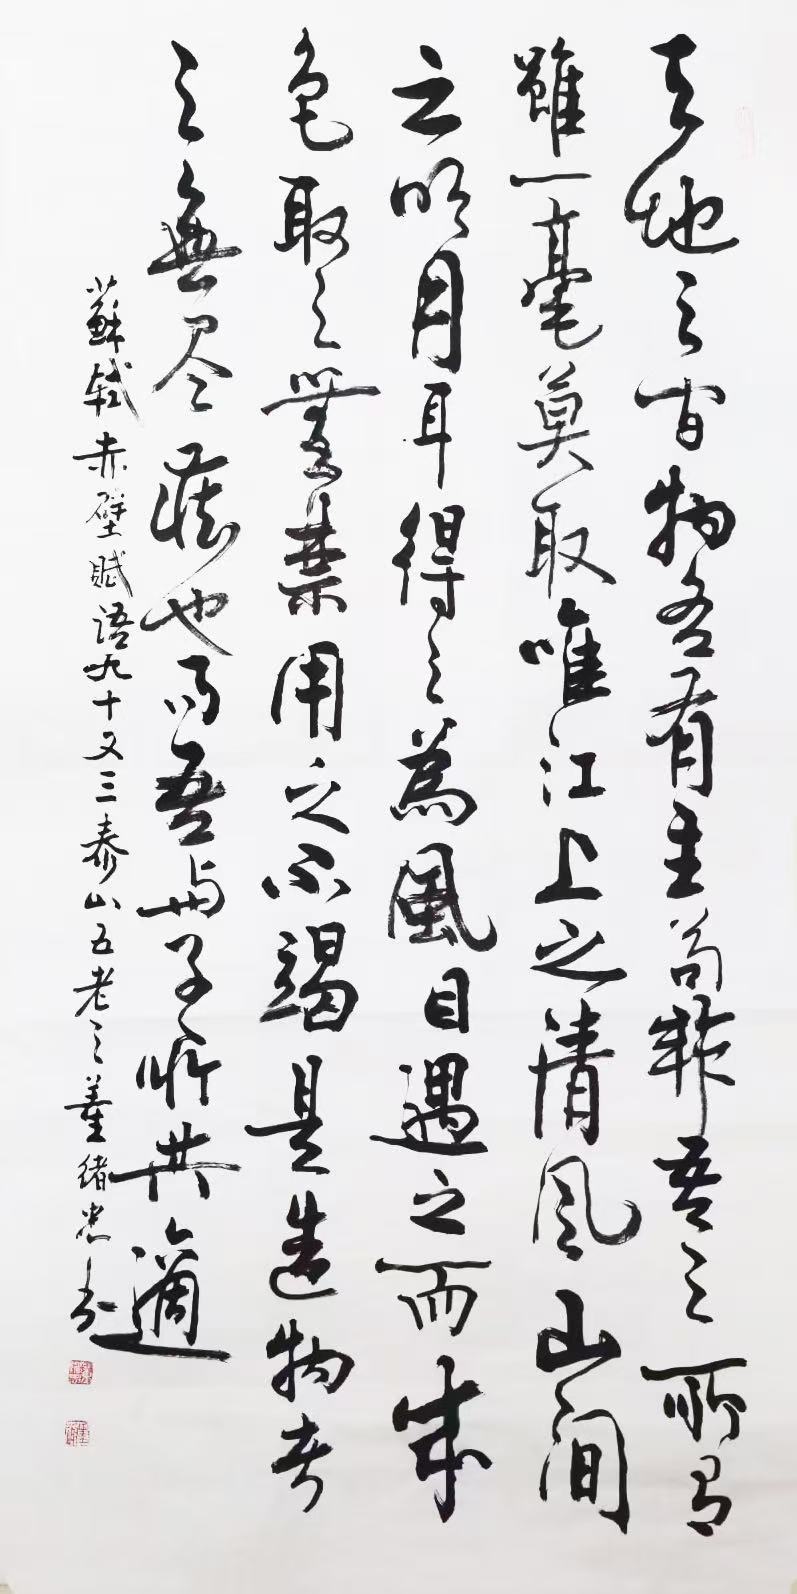 天地之间物各有主苟非吾之所有
雖一毫莫取唯江上之清风山间
之明月耳得之為風目遇之而成
色取之無禁用之不竭是造物者
之無尽藏也而吾与子所共適
蘇軾赤壁賦语九十又三泰山五老之董绪忠书